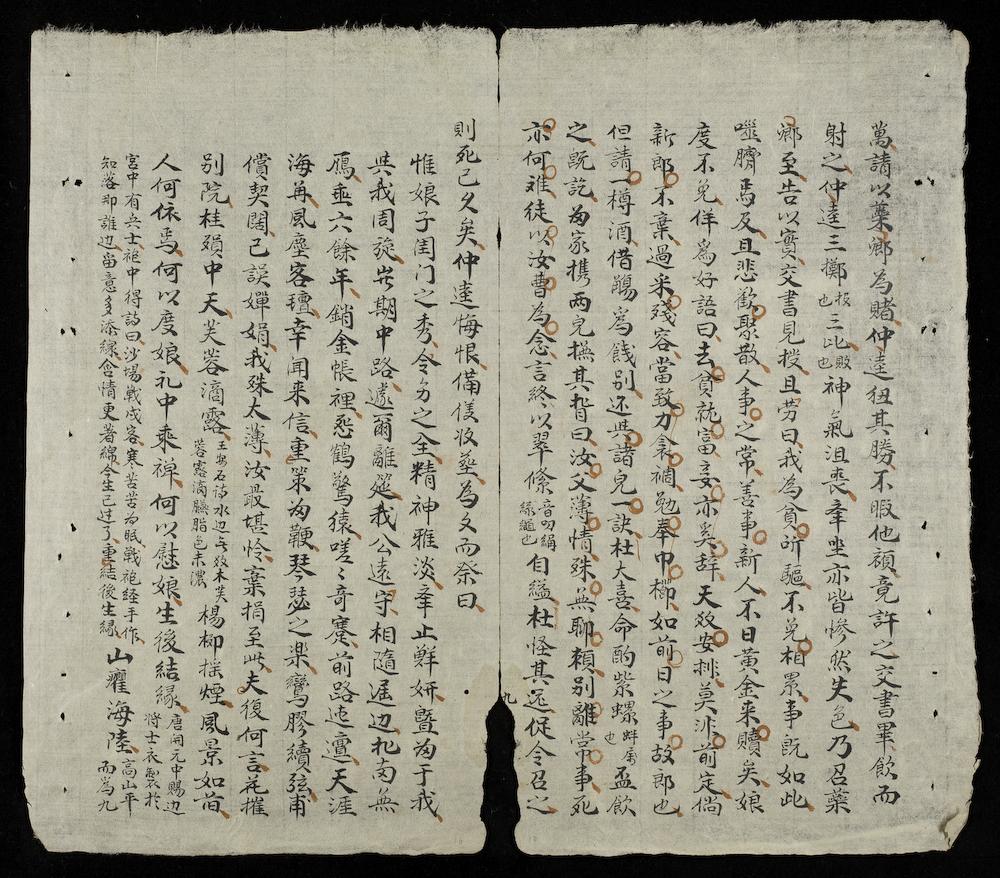 萬請以蘂鄉為賭仲逵狃其勝不暇他顧竟許之交書畢飲而
射之仲逵三擲报也三北敗也神氣沮喪牽坐亦皆慘然失色乃召蘂
鄉至告以實交書見授且劳曰我為貧所驅不免相累事既如此
噬臍焉及且悲歡聚散人事之常善事新人不日黃金来贖矣娘
度不免佯為好語曰去貧就富妾亦奚辞天效安排莫非前定倘
新郎不棄過采殘容當致力衾裯勉奉巾櫛如前日之事故郎也
但請一樽酒借觴為餞別还與諸兒一訣杜大喜命酌紫螺蚌屬也盃飲
之既訖为家携兩兒撫其背曰汝父薄情殊無聊賴別離常事死
亦何难徒以汝曹為念言終以翠絛自縊杜怪其迟促令召之
九
則死已久矣仲逵悔恨備仪收葬為文而祭曰
惟娘子闺门之秀令多之全精神雅淡牽止鮮妍曁为于我
與我周旋岁期中路遽爾離筵我公遠守相隨遥边北南無
鴈垂六餘年銷金帳裡怨鶴驚猿嗟〻奇蹇前路迍邅天涯
海角風塵客氊幸闻来信重策为鞭琴瑟之楽鸞膠續弦甫
償契闊已誤嬋娟我殊太薄汝最堪怜棄捐至此夫復何言花摧
別院桂殞中天芙蓉滴露王安石詩水边無数木芙蓉露滴臙脂色未濃楊柳搖煙風景如前
人何依焉何以度娘礼中乘禅何以慰娘生後結緣唐開元中賜边将士衣製於
宮中有兵士袍中得詩曰沙塲戰戍客寒苦若为眠戰袍経手作知落那誰边畄意多添線含情更著綿今生已过了重結後生緣山癯海陸高山平而为九